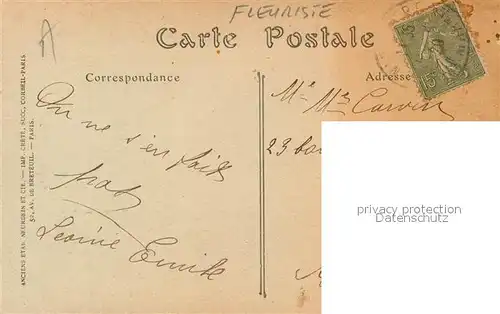 A
FLEURISTE
Carte Postale
Correspondance
Adresse
15c
On ne s'en fait
pas
Léonie Emile
Mr Mme
23
privacy protection
privacy protection
ANCIENS ETAB. NEURDEIN ET CIE. — IMP. CRÉTÉ, SUCC., CORBEIL-PARIS.
52, AV. DE BRETEUIL. — PARIS.